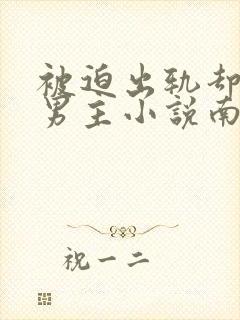 被迫出轨却
男主小説南
祝一二